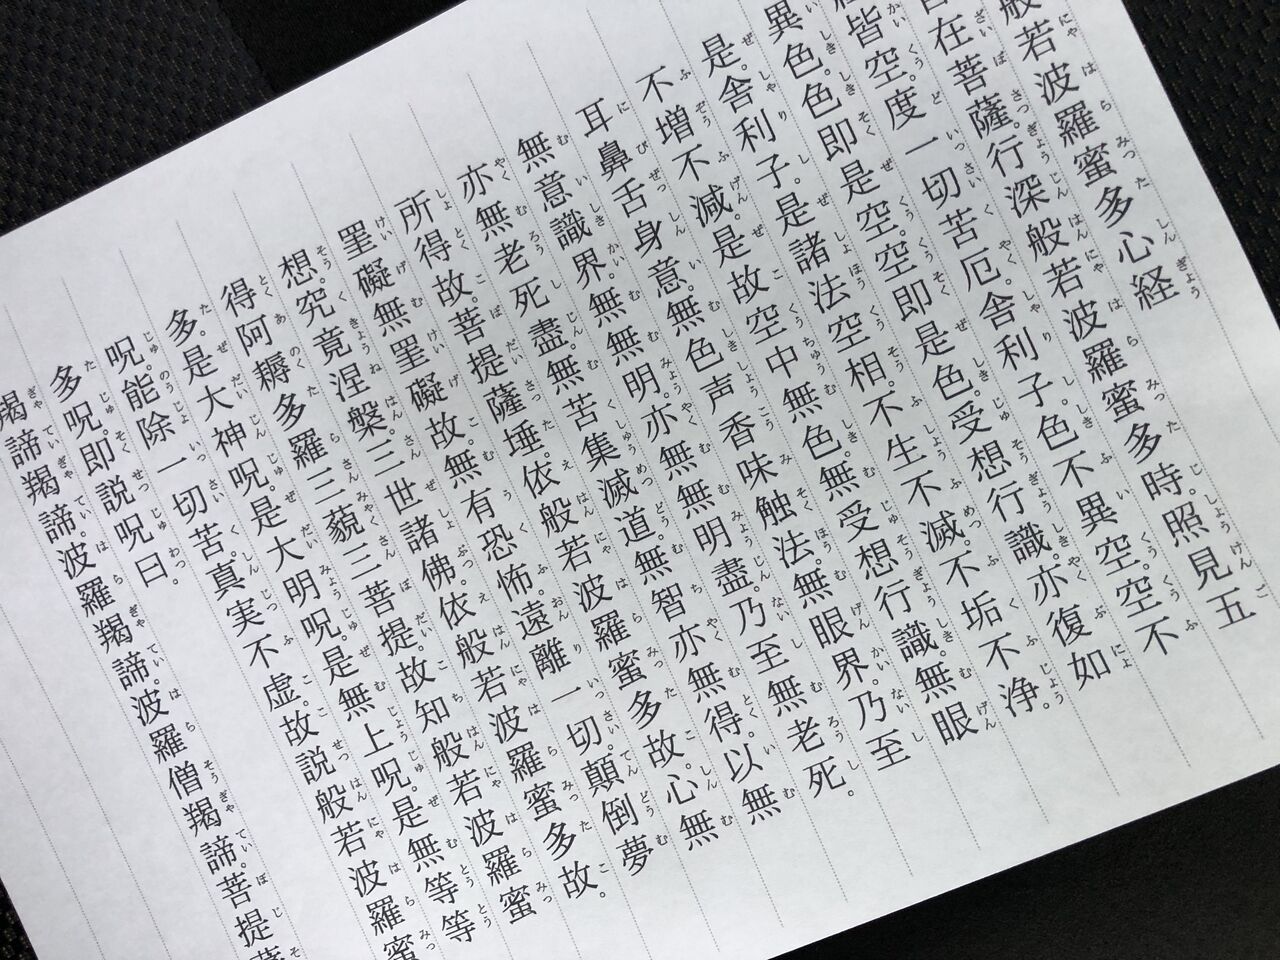 般若波羅蜜多心経
自在菩薩。行深般若波羅蜜多時。照見五
蘊皆空。度一切苦厄。舎利子。色不異空。空不
異色。色即是空。空即是色。受想行識。亦復如
是。舎利子。是諸法空相。不生不滅。不垢不浄。
不増不減。是故空中無色。無受想行識。無眼
耳鼻舌身意。無色声香味触法。無眼界。乃至
無意識界。無無明。亦無無明盡。乃至無老死。
亦無老死盡。無苦集滅道。無智亦無得。以無
所得故。菩提薩埵。依般若波羅蜜多故。心無
罣礙無罣礙故。無有恐怖。遠離一切顛倒夢
想。究竟涅槃。三世諸佛。依般若波羅蜜多故。
得阿耨多羅三藐三菩提。故知般若波羅蜜
多。是大神呪。是大明呪。是無上呪。是無等等
呪。能除一切苦。真実不虚。故説般若波羅蜜
多呪。即説呪曰。
羯諦羯諦。波羅羯諦。波羅僧羯諦。菩提薩